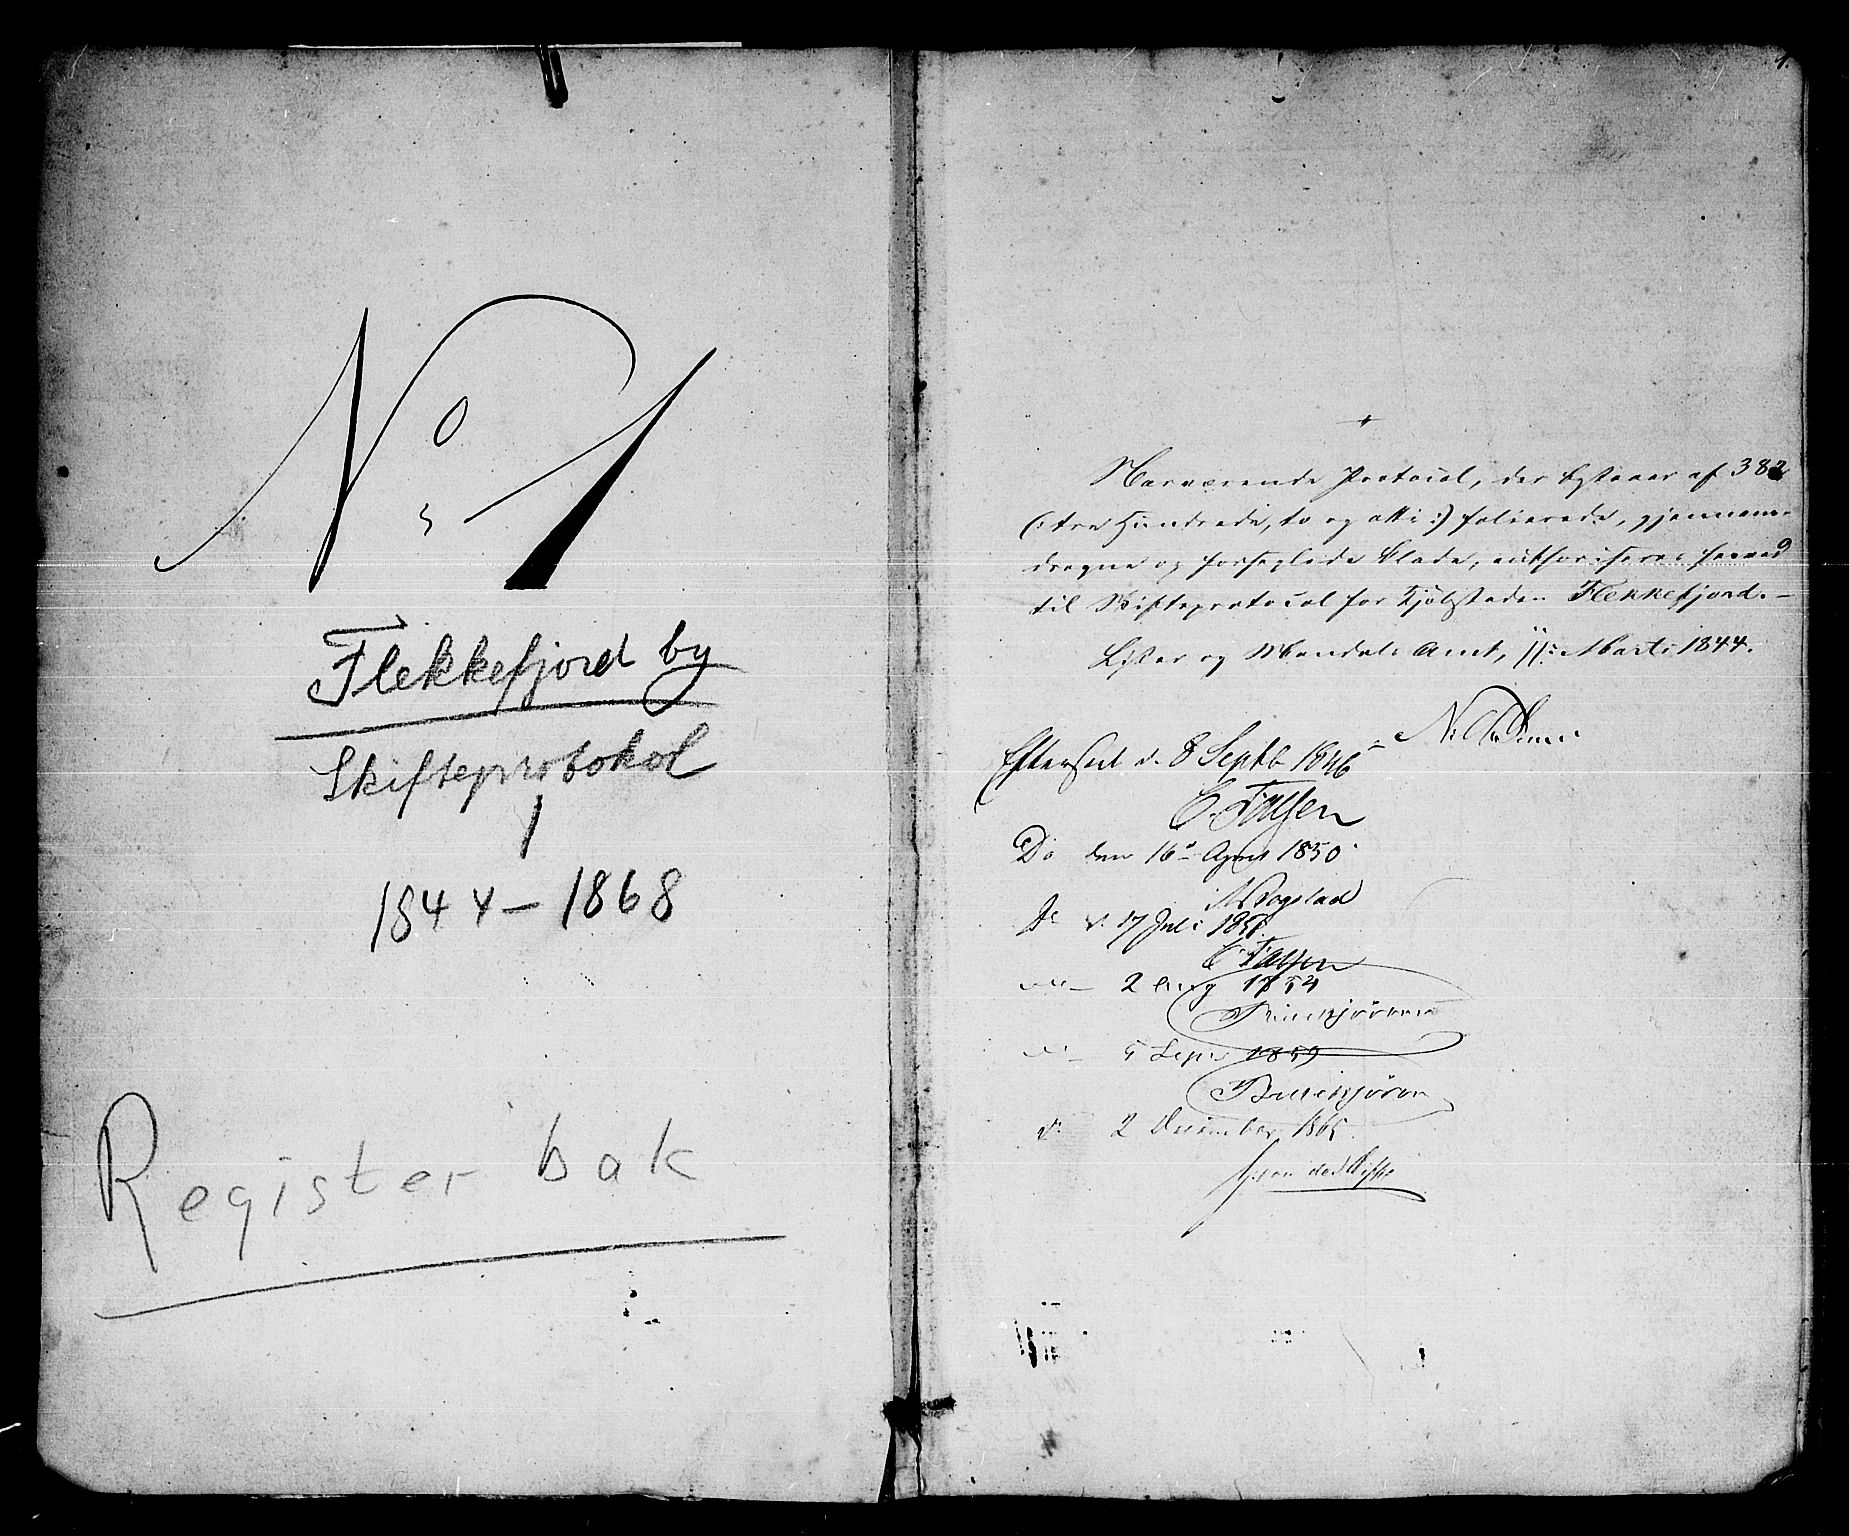 No 1
Flekkefjord by
Skifteprotokol
1
1844 – 1868
Register bak
1.
Nærværende Protocol, der bestaaer af 382
(: tre Hundrede, to og otti :) folierede, gjennem-
dragne og forseglede Blade, authoriseres herved
til Skifteprotocol for Kjøbstaden Flekkefjord. –
Lister og Mandals Amt, 11: Marts 1844.
Efterseet d. 8 Septb 1846
C. Falsen
Do den 16de April 1850
do d. 17 Juli 1851
C Falsen
do – 2 Aug 1854
do – 5 Sept 1859
d. 2 December 1865